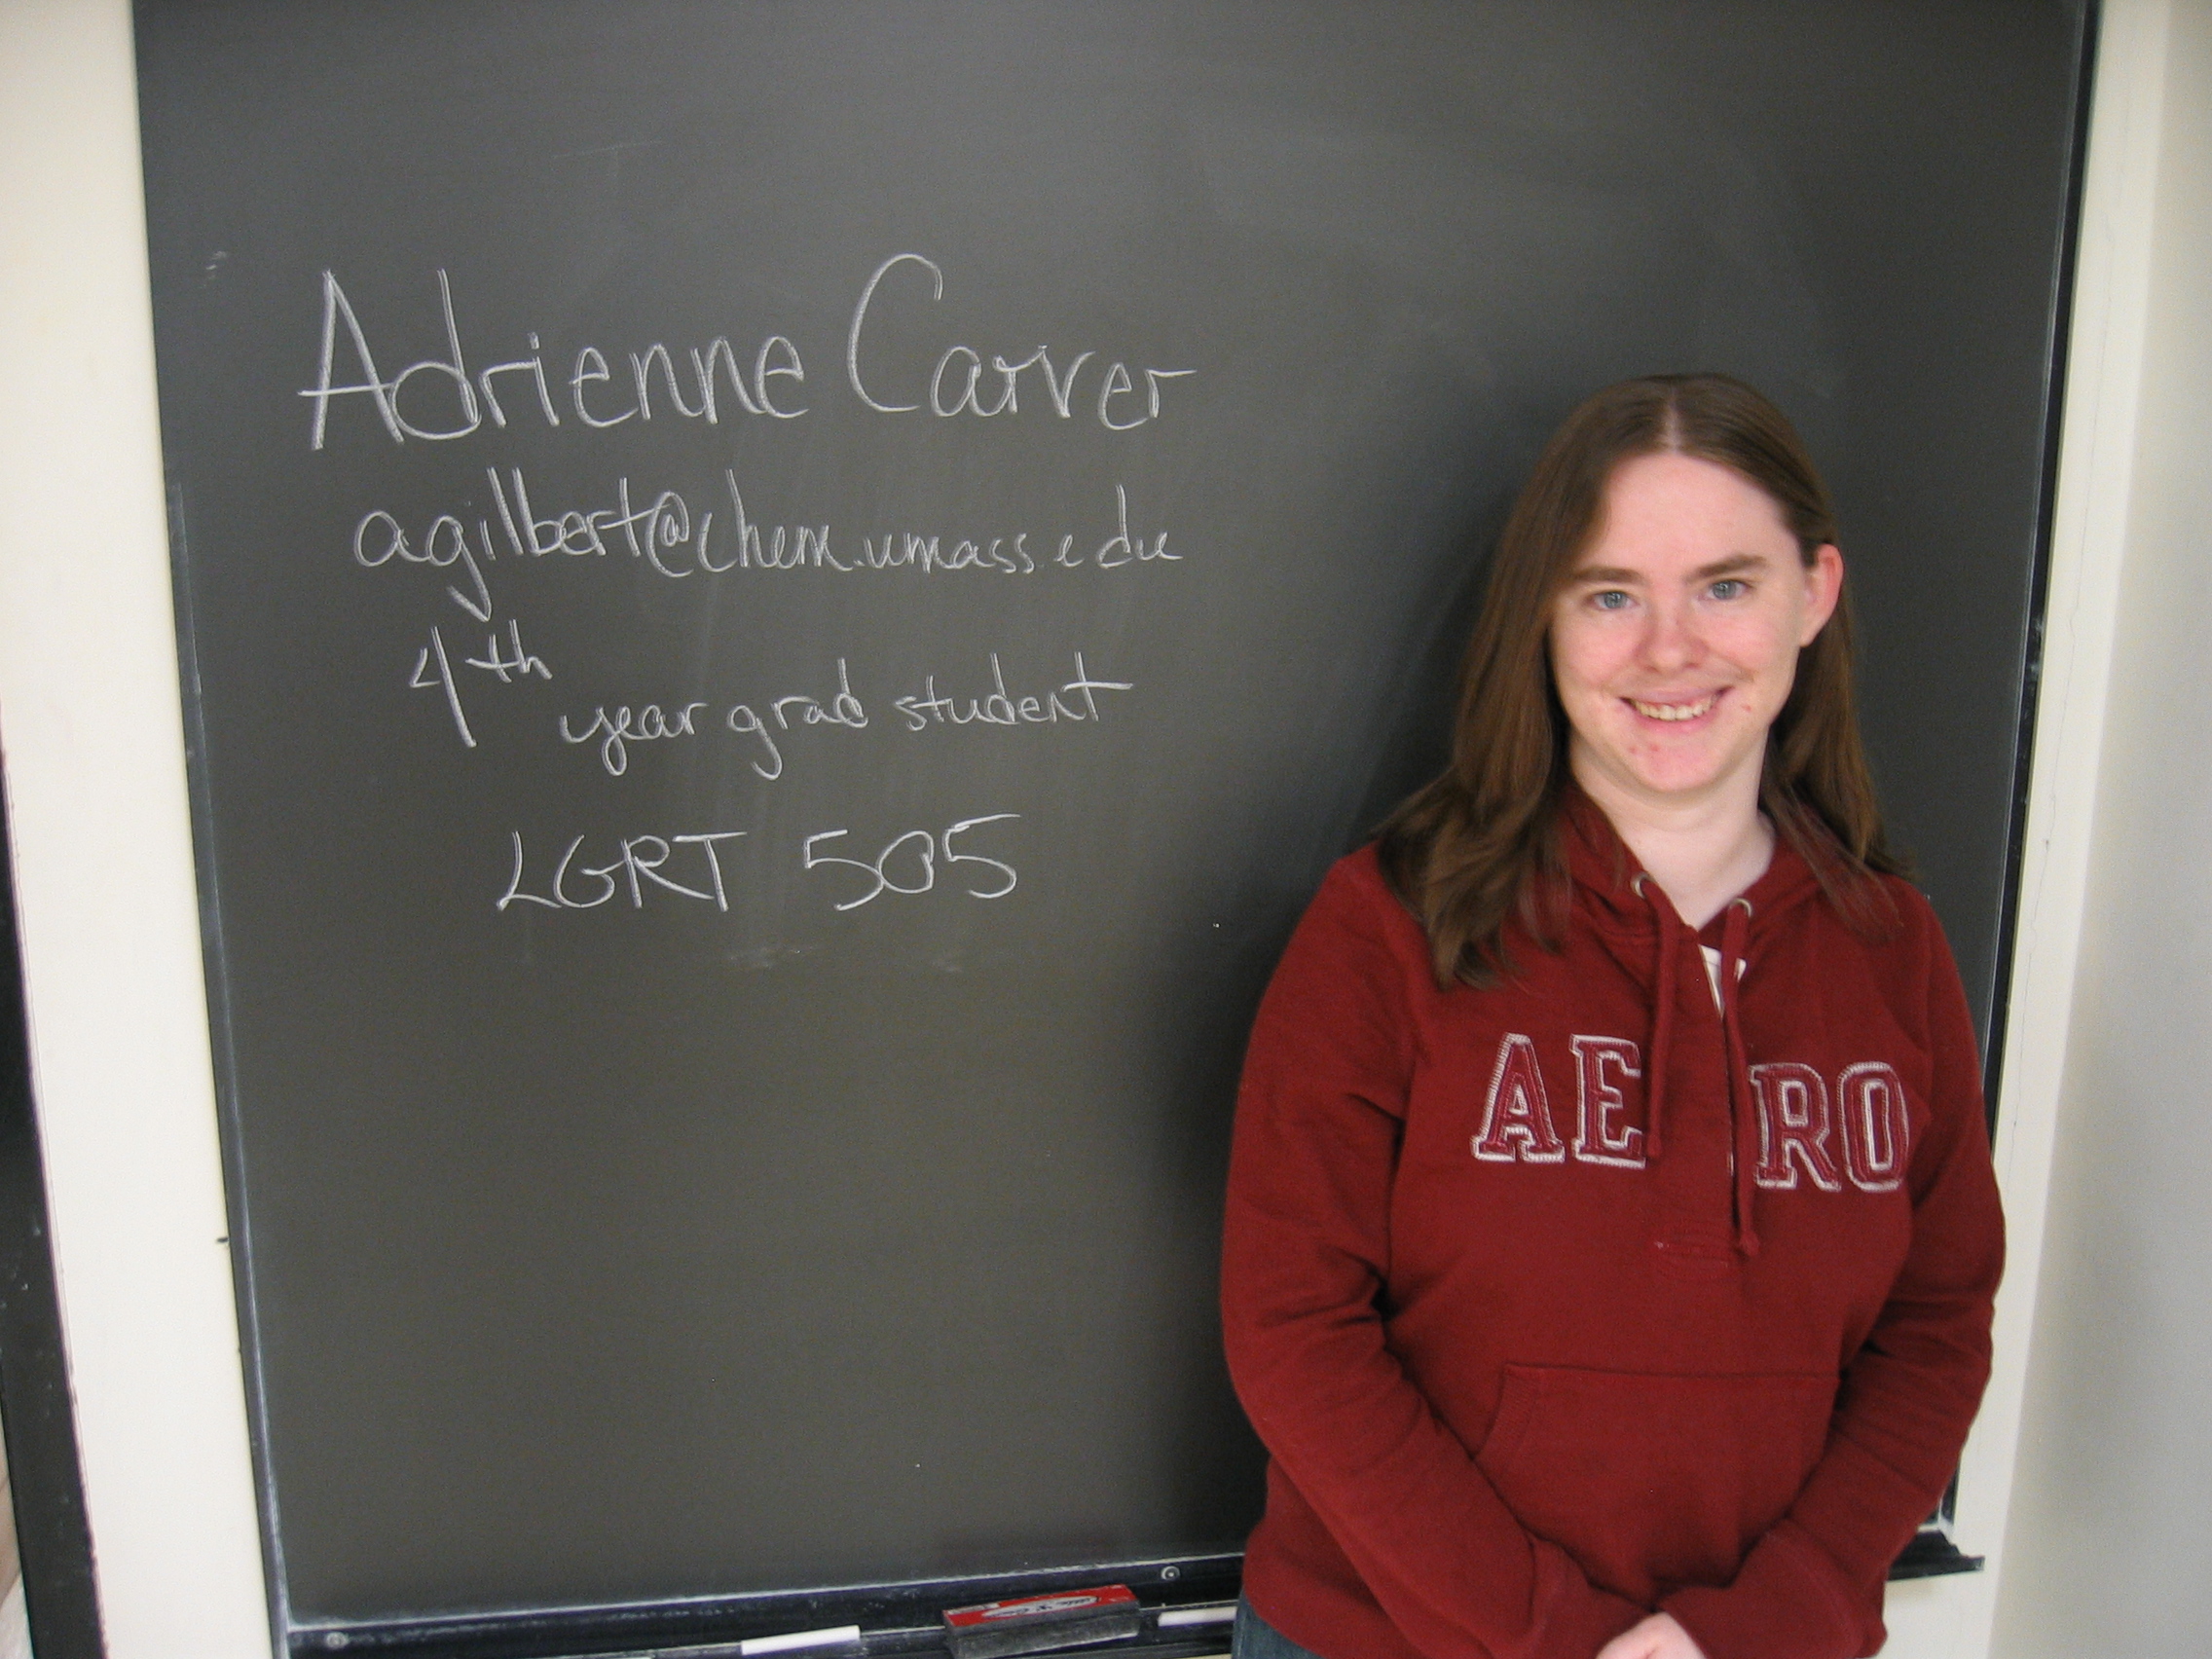 Adrienne Carver
agilbert@chem.umass.edu
4th year grad student
LGRT 505
AERO